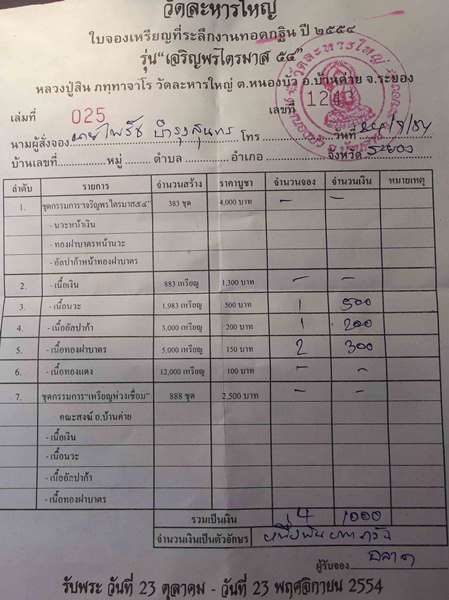 วัดละหารใหญ่
ใบจองเหรียญที่ระลึกงานทอดกฐิน ปี ๒๕๕๔
รุ่น"เจริญพรไตรมาส ๕๔"
หลวงปู่สิน ภททาจาโร วัดละหารใหญ่ ต.หนองบัว อ.บ้านค่าย จ.ระยอง
เล่มที่ 025 เลขที่ 1243
นามผู้สั่งจอง โทร วันที่
บ้านเลขที่ หมู่ ตำบล อำเภอ จังหวัด ระยอง
ลำดับ รายการ จำนวนสร้าง ราคาบูชา จำนวนจอง จำนวนเงิน หมายเหตุ
1. ชุดกรรมการ"เจริญพรไตรมาส๕๔" 383 ชุด 4,000 บาท - -
- นวะหน้าเงิน
- ทองฝาบาตรหน้านวะ
- อัลปาก้าหน้าทองฝาบาตร
2. - เนื้อเงิน 883 เหรียญ 1,300 บาท - -
3. - เนื้อนวะ 1,983 เหรียญ 500 บาท 1 500
4. - เนื้ออัลปาก้า 3,000 เหรียญ 200 บาท 1 200
5. - เนื้อทองฝาบาตร 5,000 เหรียญ 150 บาท 2 300
6. - เนื้อทองแดง 12,000 เหรียญ 100 บาท - -
7. ชุดกรรมการ"เหรียญห่วงเชื่อม" 888 ชุด 2,500 บาท - -
คณะสงฆ์ อ.บ้านค่าย
- เนื้อเงิน
- เนื้อนวะ
- เนื้ออัลปาก้า
- เนื้อทองฝาบาตร
รวมเป็นเงิน 4 1000
จำนวนเงินเป็นตัวอักษร
ผู้รับจอง
รับพระ วันที่ 23 ตุลาคม - วันที่ 23 พฤศจิกายน 2554